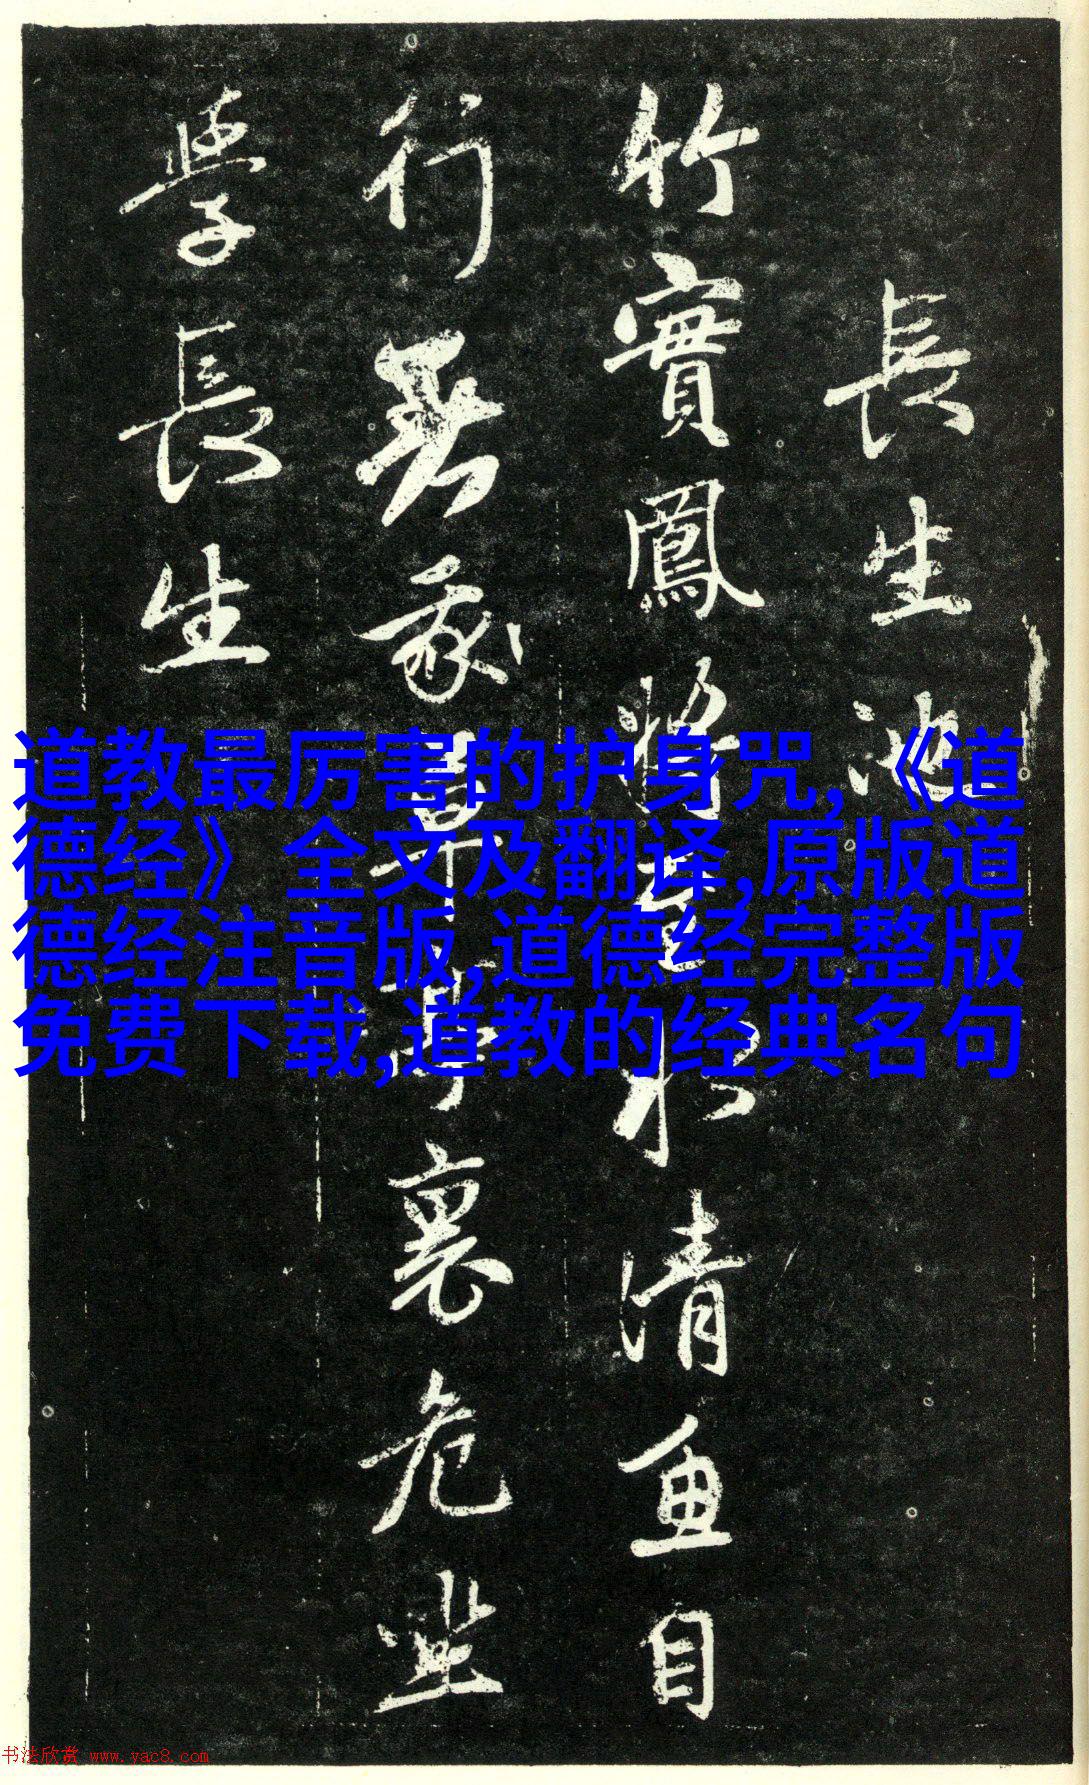 長生池
竹實鳳將至水清魚自
行著我草亭裏危坐
學長生
道教最厉害的护身咒,《道
德经》全文及翻译,原版道
德经注音版,道德经完整版
免费下载,道教的经典名句
书法欣赏 www.yac8.com